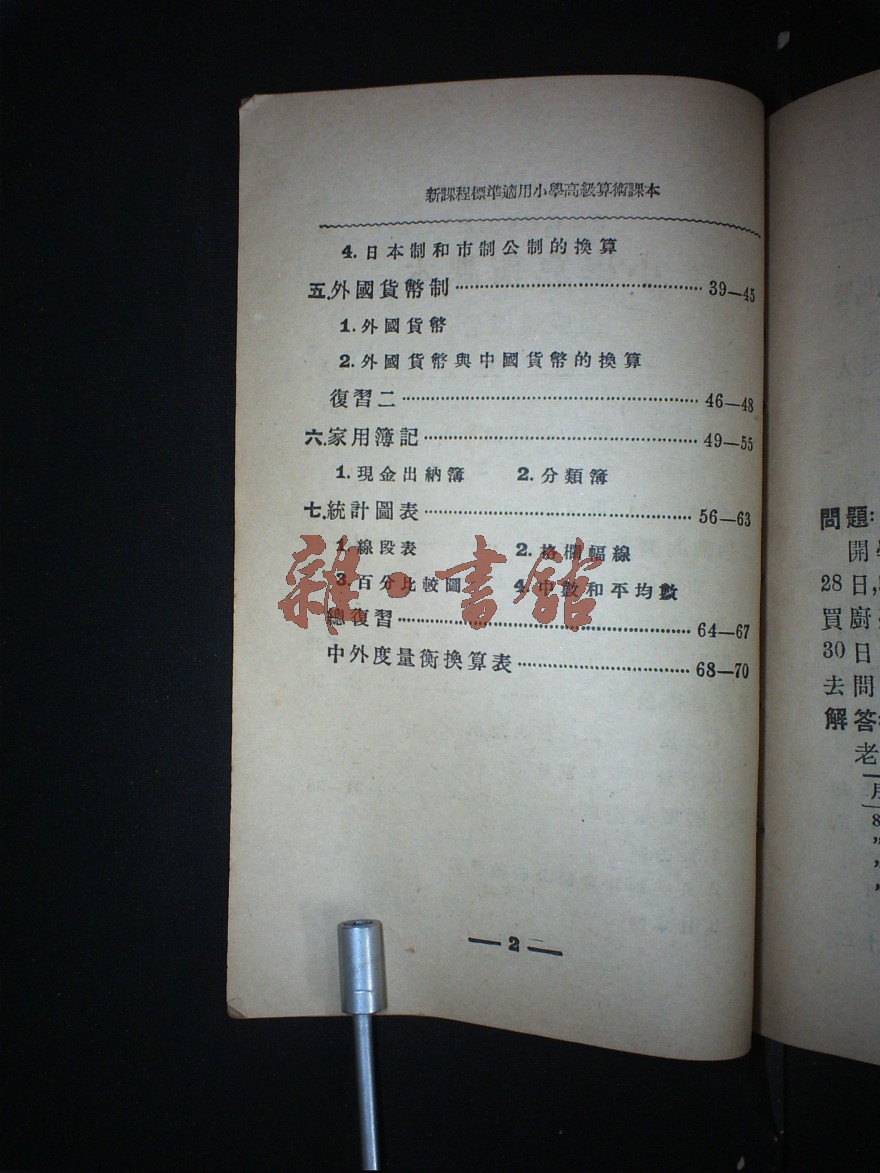 新課程標準適用小學高級算術課本
4. 日本制和市制公制的換算
五. 外國貨幣制 39—45
1. 外國貨幣
2. 外國貨幣與中國貨幣的換算
復習二 46—48
六. 家用簿記 49—55
1. 現金出納簿 2. 分類簿
七. 統計圖表 56—63
1. 線段表 2. 格欄幅線
3. 百分比較圖 4. 中數和平均數
總復習 64—67
中外度量衡換算表 68—70
— 2 —
雜·書館
問題:
開學
28日,
買廚
30日
去問
解答
老
月
8